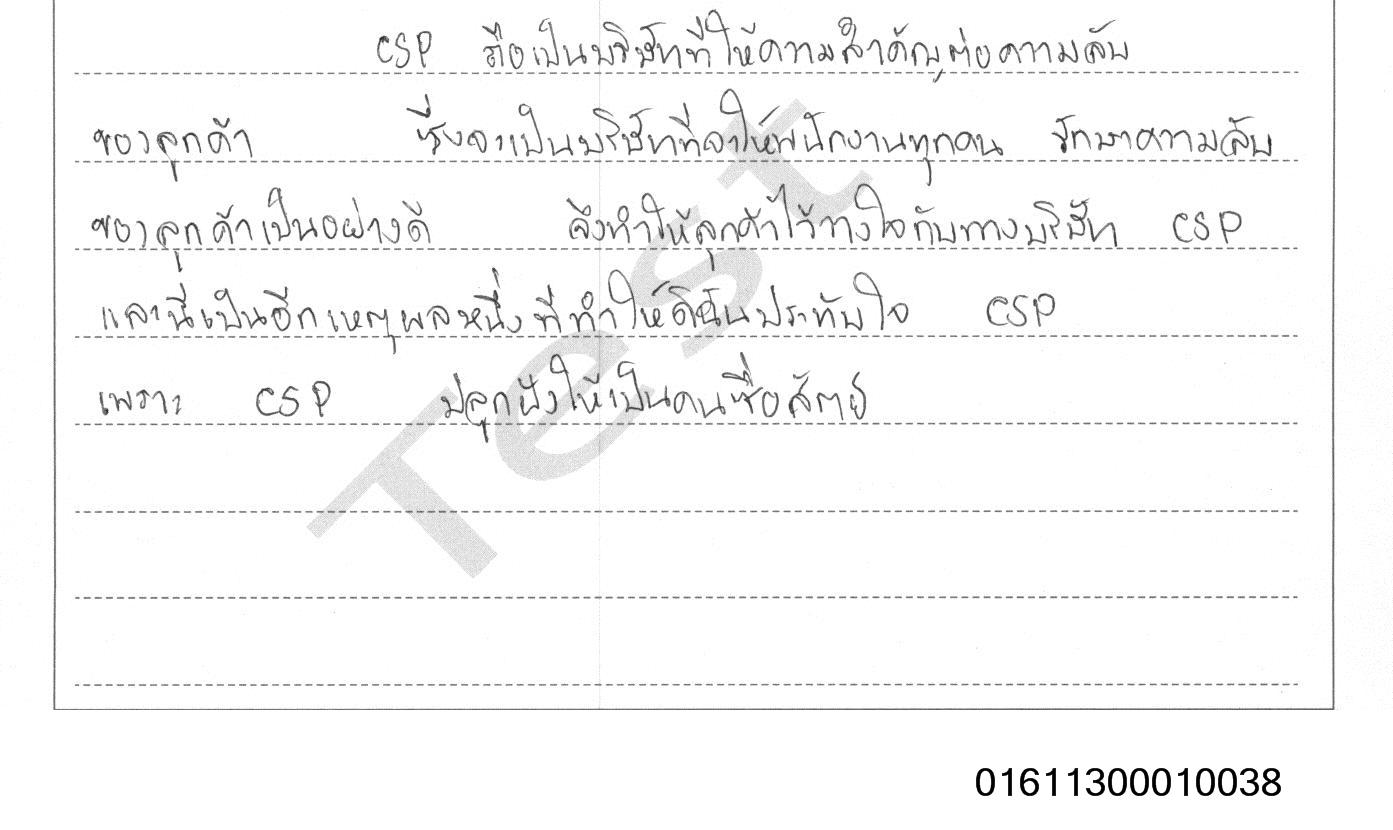 CSP ถือเป็นบริษัทที่ให้ความสำคัญต่อความลับ
ของลูกค้า ซึ่งจะเป็นบริษัทที่จะให้พนักงานทุกคน รักษาความลับ
ของลูกค้าเป็นอย่างดี จึงทำให้ลูกค้าไว้วางใจกับทางบริษัท CSP
และนี่เป็นอีกเหตุผลหนึ่งที่ทำให้ดิฉันประทับใจ CSP
เพราะ CSP ปลูกฝังให้เป็นคนซื่อสัตย์
Test
01611300010038